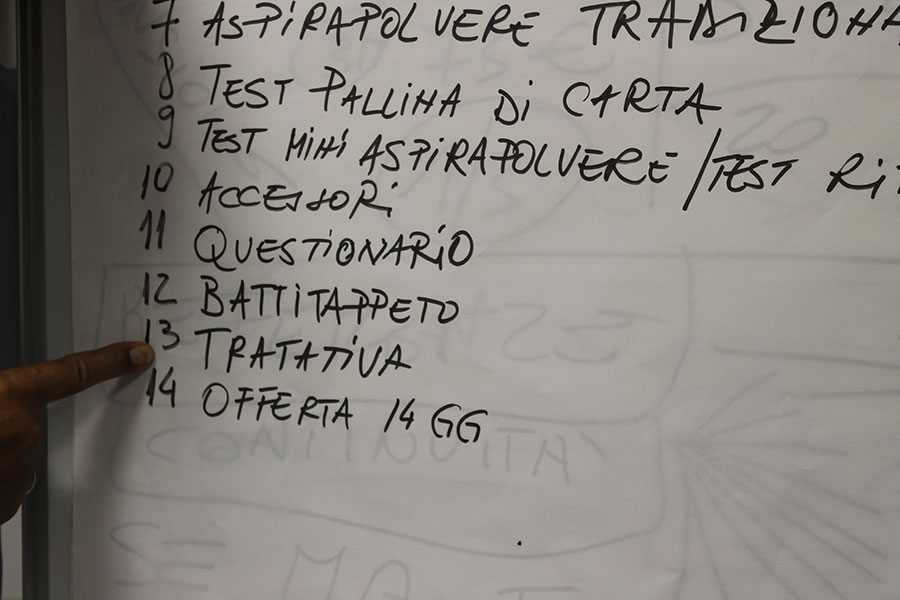 7 ASPIRAPOLVERE
8 TEST PALLINA DI CARTA
9 TEST MINI ASPIRAPOLVERE / TEST
10 ACCESSORI
11 QUESTIONARIO
12 BATTITAPPETO
13 TRATATIVA
14 OFFERTA 14 GG
CONTINUITA'
SE MA